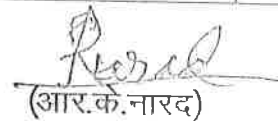 (आर.के.नारद)